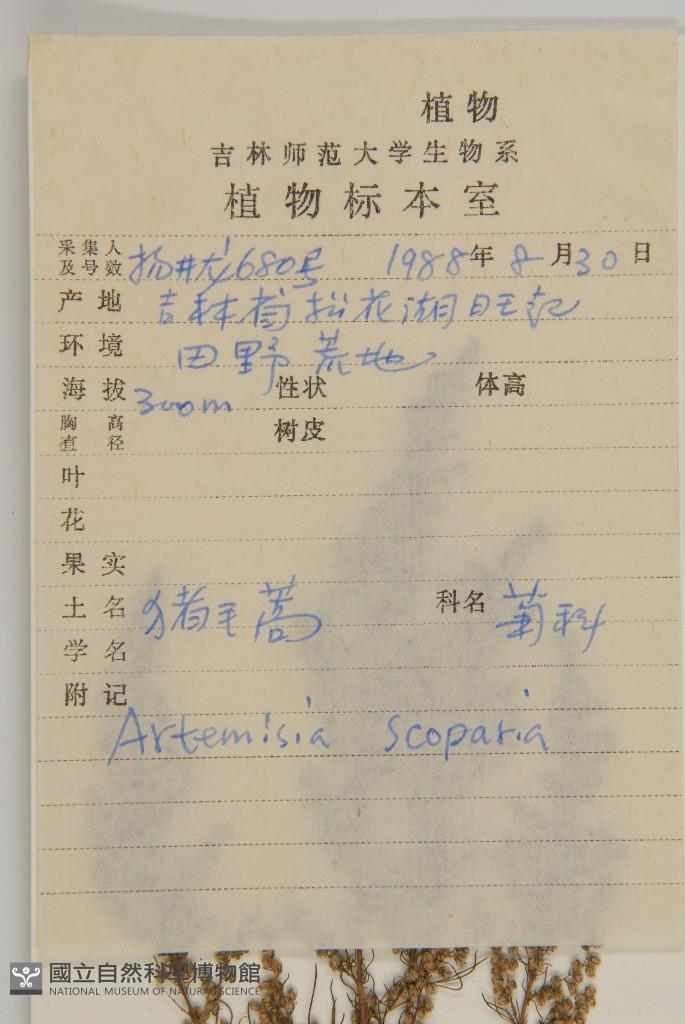 植物
吉林师范大学生物系
植物标本室
采集人及号数 扬井龙680号 1988年8月30日
产地 吉林省松花湖旺起
环境 田野荒地
海拔 300m 性状 体高
胸高直径 树皮
叶
花
果实
土名 猪毛蒿 科名 菊科
学名
附记
Artemisia scoparia
國立自然科學博物館
NATIONAL MUSEUM OF NATURAL SCIENCE